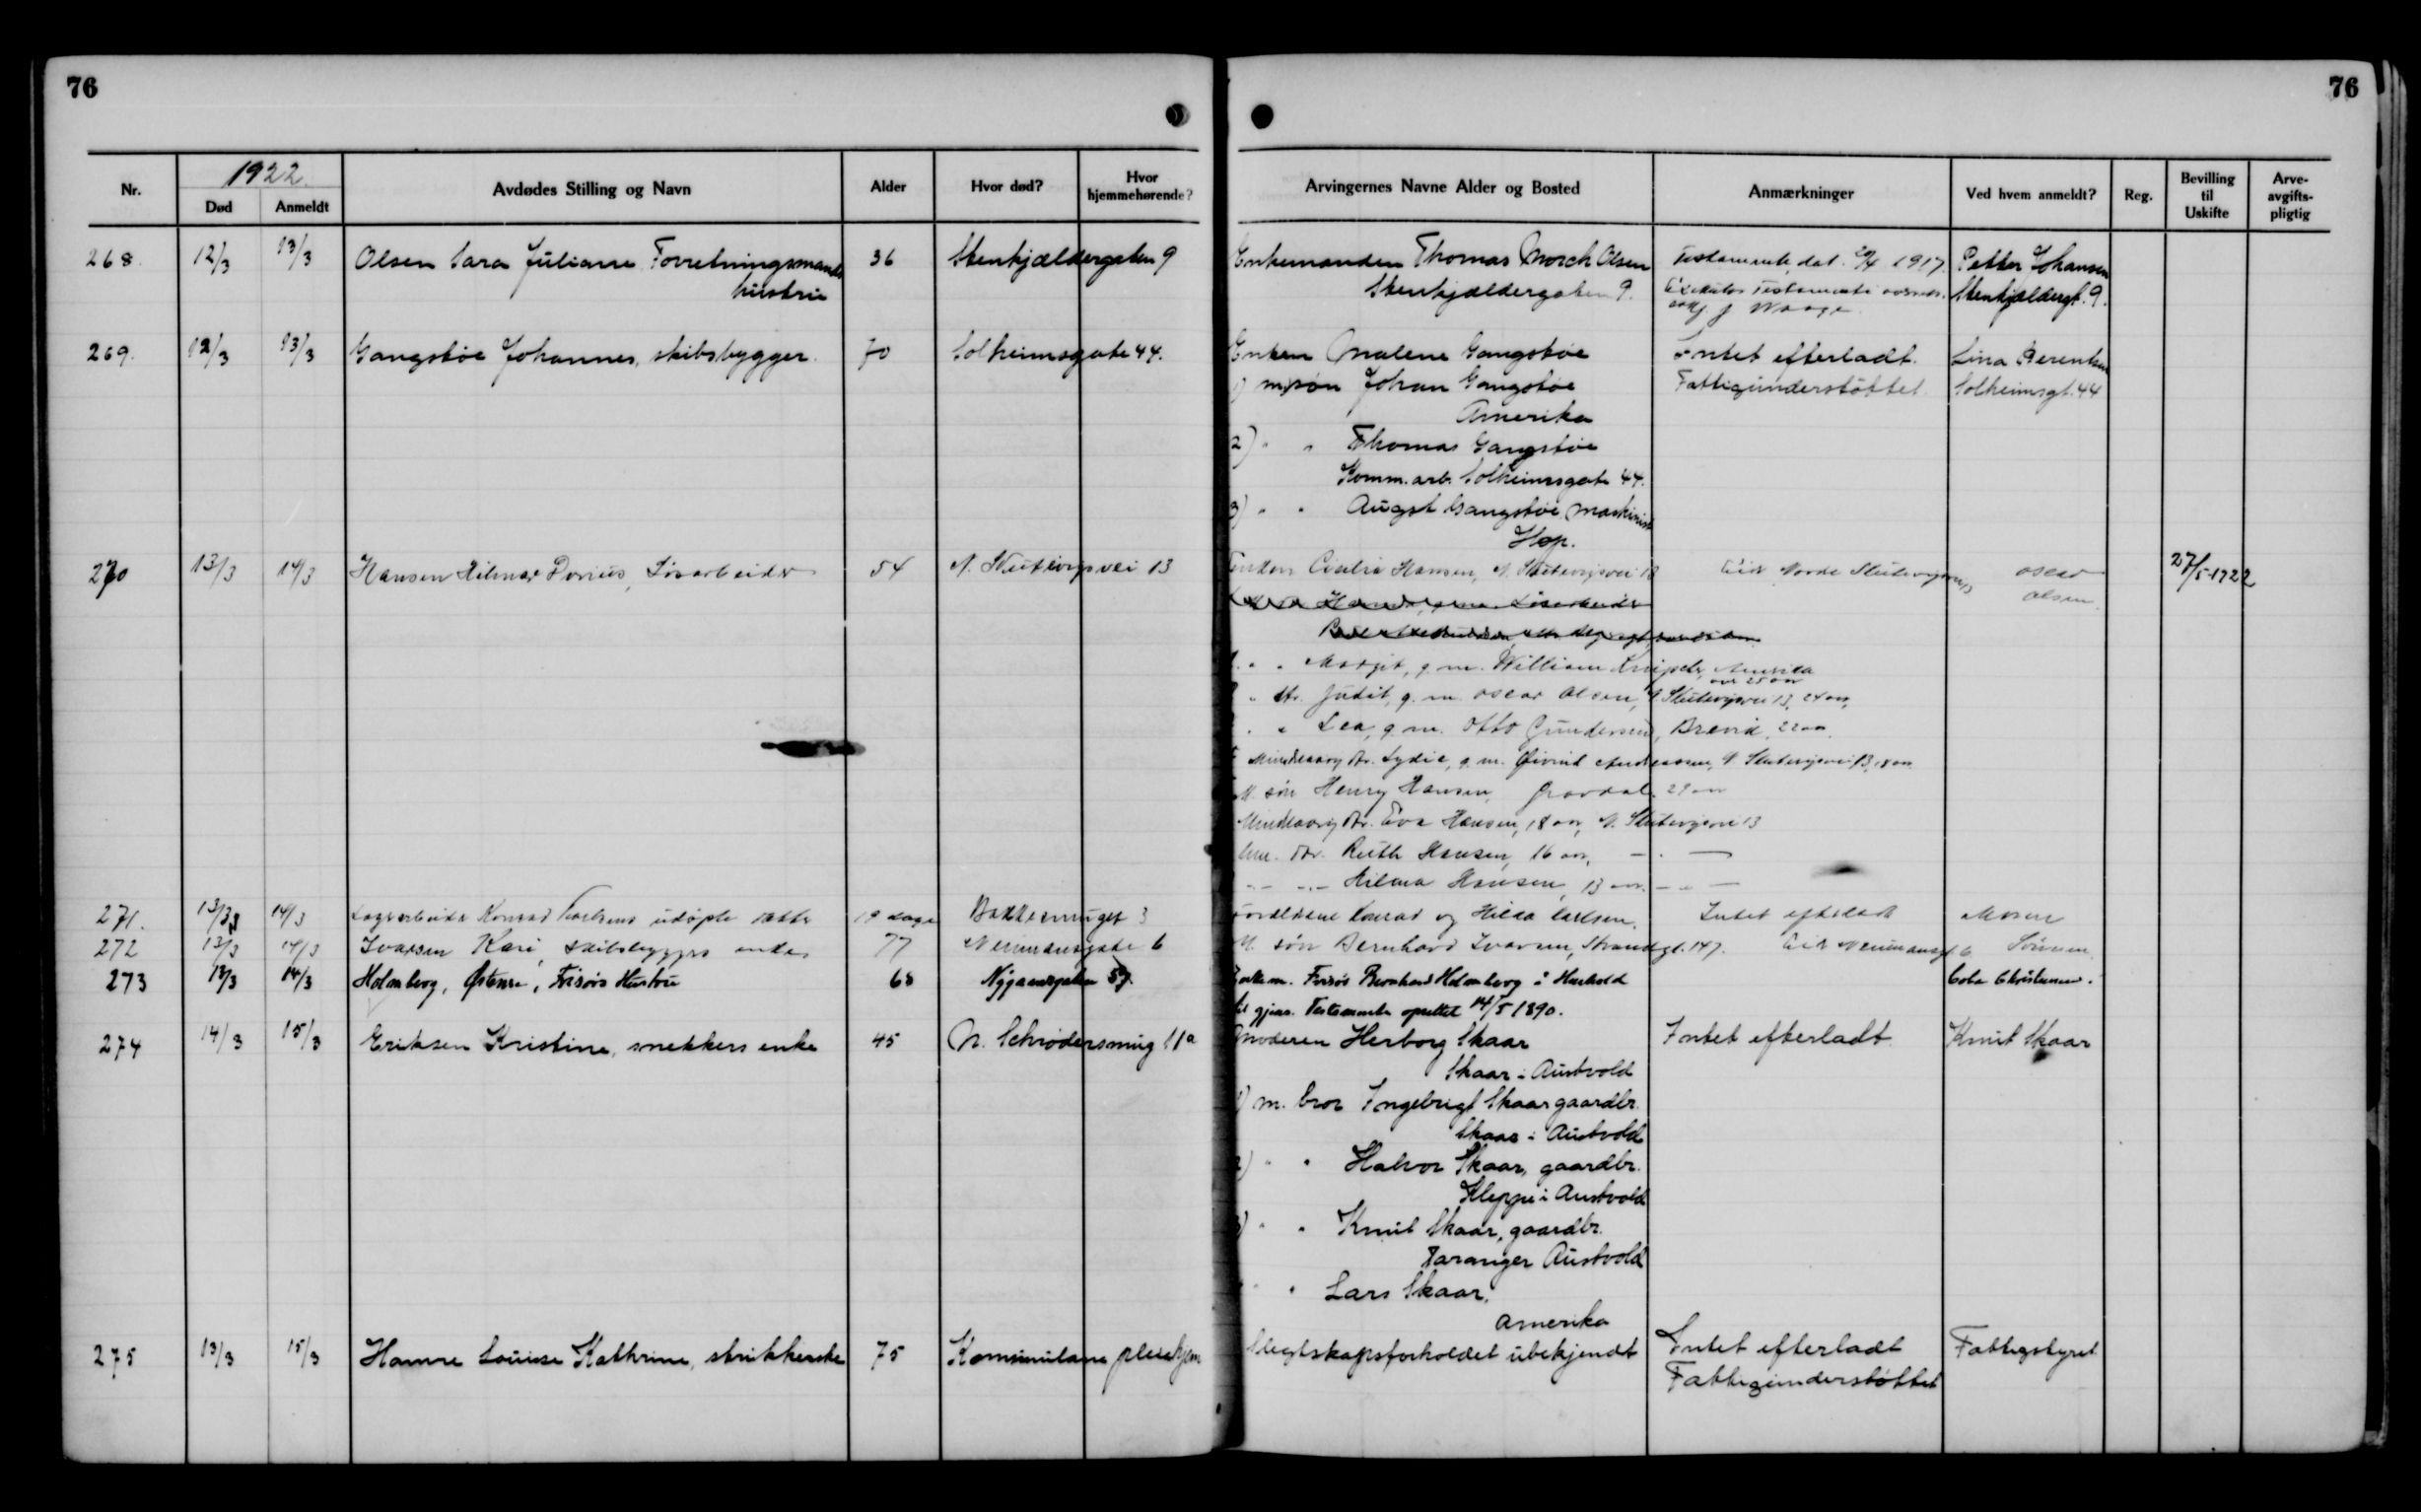 76
76
Nr.
1922
Død
Anmeldt
Avdødes Stilling og Navn
Alder
Hvor død?
Hvor hjemmehørende?
Arvingernes Navne Alder og Bosted
Anmærkninger
Ved hvem anmeldt?
Reg.
Bevilling til Uskifte
Arve-avgifts-pligtig
268. 12/3 13/3 Olsen Sara Juliane Forretningsmands 36 Stenkjældergaten 9 Enkemanden Thomas Morch Olsen Testamente, dat. 1917. Petter Johansen
hustru Stenkjældergaten 9. Testamente Stenkjældergt. 9.
269. 12/3 13/3 Gangstøe Johannes, skibsbygger. 70 Solheimsgate 44. Enken Malene Gangstøe Intet efterladt. Lina Berentsen
1) m. søn Johan Gangstøe Fattigunderstøttet Solheimsgt. 44
Amerika
2) " " Thomas Gangstøe
Komm. arb. Solheimsgate 44.
3) " " Augst Gangstøe Maskinist
Hop.
270 13/3 14/3 Hansen Hilmar Dorius, Løsarbeider 54 N. Skutevigsvei 13 Enken Hansen, N. Skutevigsvei Norde Skutevigsvei 13 Oscar 27/5-1922
Olsen.
" " Margit, g. m. William Amerika
over 25 aar
" dtr. Judit, g. m. Oscar Olsen, N. Skutevigsvei 13, 24 aar,
" " Lea, g. m. Otto Gundersen, Brevik, 22 aar.
Mindreaarig dtr. Lydie, g. m. Eivind Andreassen, N. Skutevigsvei 13,
M. søn Henry Hansen, Gravdal. 29 aar
Mindreaarig dtr. Eva Hansen, 18 aar, N. Skutevigsvei 13
Min. dtr. Ruth Hansen, 16 aar, — " —
-"- -"- Hilma Hansen, 13 aar. — " —
271. 13/3 14/3 Konrad Karlsens udøpte datter 18 dage Bakkesmuget 3 Forældrene Konrad og Hilda Carlsen. Intet efterladt Moren
272 13/3 14/3 Ivarsen Kari, skibsbyggers enke 77 Neumansgate 6 M. søn Bernhard Ivarsen, Strandgt. 147. Neumansgt. 6 Sønnen.
273 13/3 14/3 Holmberg, Frisørs Hustru 68 Nygaardsgaten 57. Enkem. Frisør Bernhard Holmberg Christensen.
gjens. Testamente oprettet 14/5 1890.
274 14/3 15/3 Eriksen Kristine, snekkers enke 45 N. Schrødersmug 11a Moderen Herborg Skaar Intet efterladt Knut Skaar
Skaar i Austvold
1) m. bror Ingebrigt Skaar gaardbr.
Skaar i Austvold
2) " " Halvor Skaar, gaardbr.
Kleppe i Austvold
3) " " Knut Skaar, gaardbr.
Haranger Austvold
" " Lars Skaar,
Amerika
275 13/3 15/3 Hamre Louise Kathrine, strikkerske 75 Kommunlane pleiehjem Slegtskapsforholdet ubekjendt Intet efterladt Fattigstyret
Fattigunderstøttet